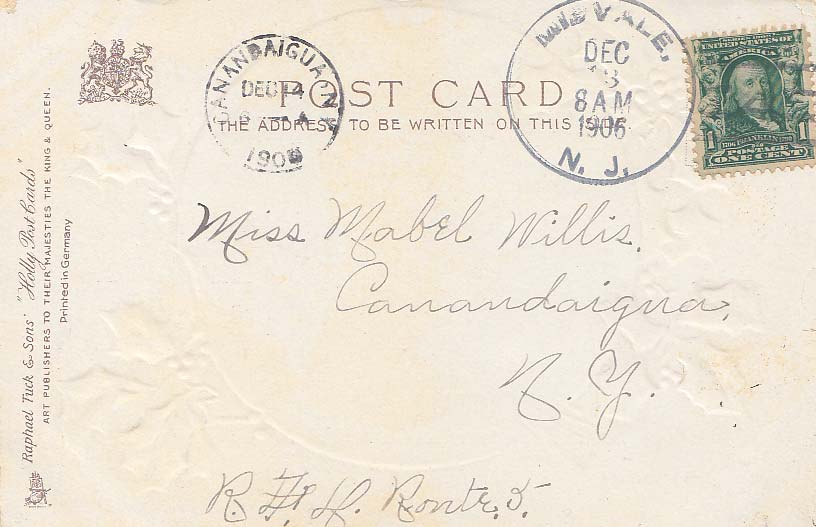 CANANDAIGUA, N.Y.
DEC 14
1906
MIDVALE,
DEC
13
8 AM
1906
N. J.
POST CARD
THE ADDRESS TO BE WRITTEN ON THIS SIDE.
UNITED STATES OF
AMERICA
1 1
POSTAGE
ONE CENT
Miss Mabel Willis,
Canandaigua,
N. Y.
R. F. D. Route. 5.
Raphael Tuck & Sons' "Holly Post Cards"
ART PUBLISHERS TO THEIR MAJESTIES THE KING & QUEEN.
Printed in Germany